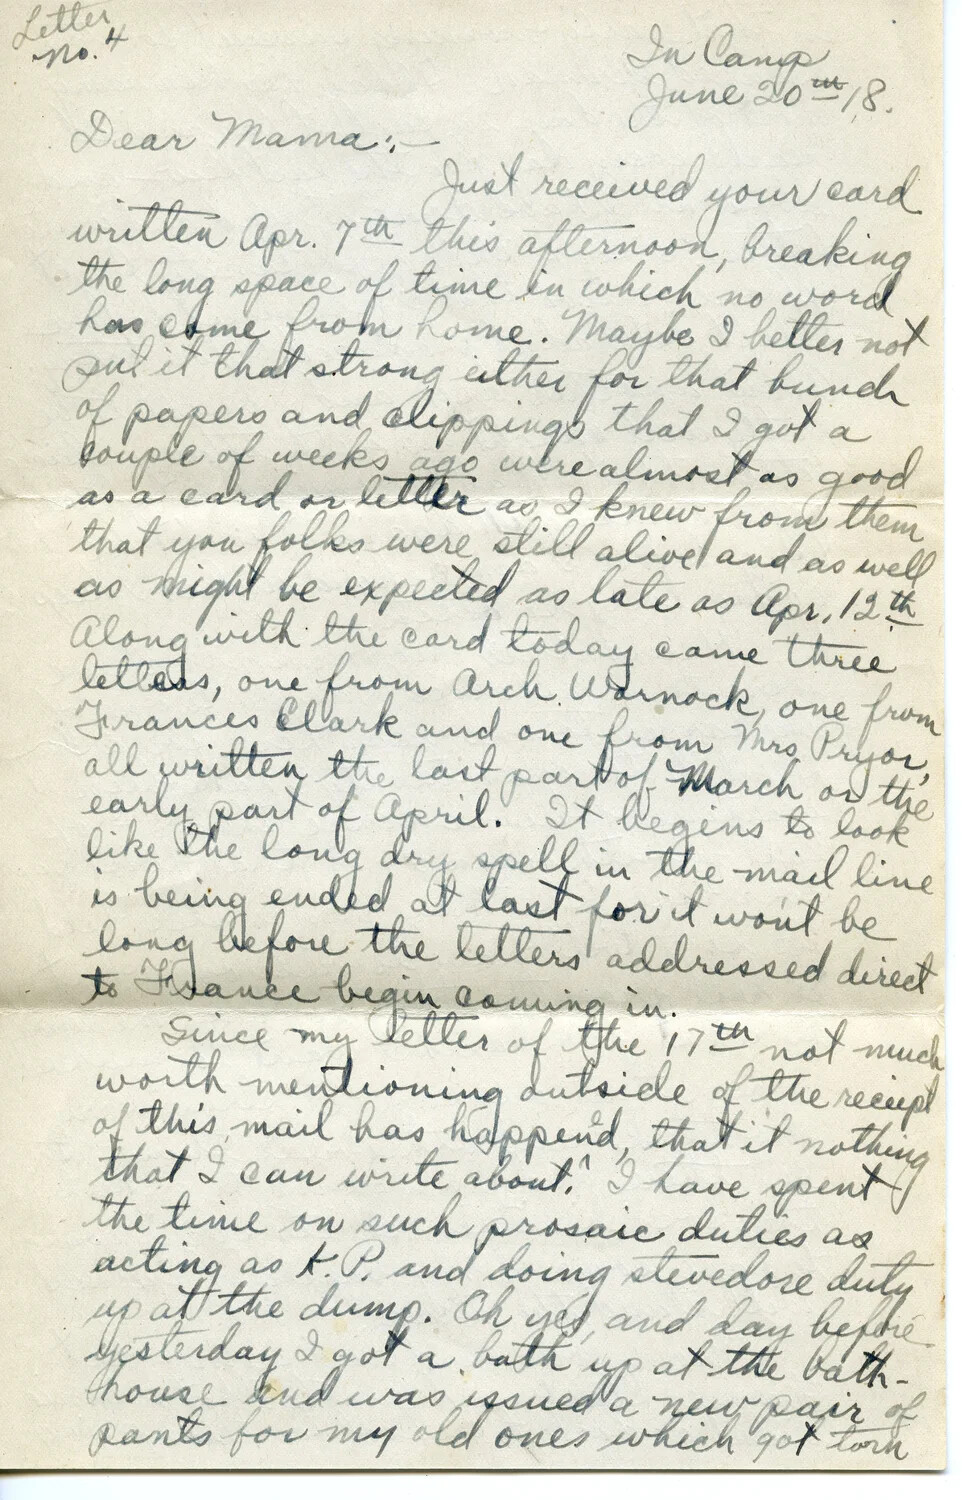 Letter
No. 4
In Camp
June 20th, 18.
Dear Mama:,—
Just received your card
written Apr. 7th this afternoon, breaking
the long space of time in which no word
has come from home. Maybe I better not
put it that strong either for that bunch
of papers and clippings that I got a
couple of weeks ago were almost as good
as a card or letter as I knew from them
that you folks were still alive and as well
as might be expected as late as Apr. 12th
Along with the card today came three
letters, one from Arch Warnock, one from
Frances Clark and one from Mrs Pryor,
all written the last part of March or the
early part of April. It begins to look
like the long dry spell in the mail line
is being ended at last for it won't be
long before the letters addressed direct
to France begin coming in.
Since my letter of the 17th not much
worth mentioning outside of the receipt
of this mail has happen'd, that it nothing
that I can write about. I have spent
the time on such prosaic duties as
acting as K.P. and doing stevedore duty
up at the dump. Oh yes, and day before
yesterday I got a bath up at the bath-
house and was issued a new pair of
pants for my old ones which got torn